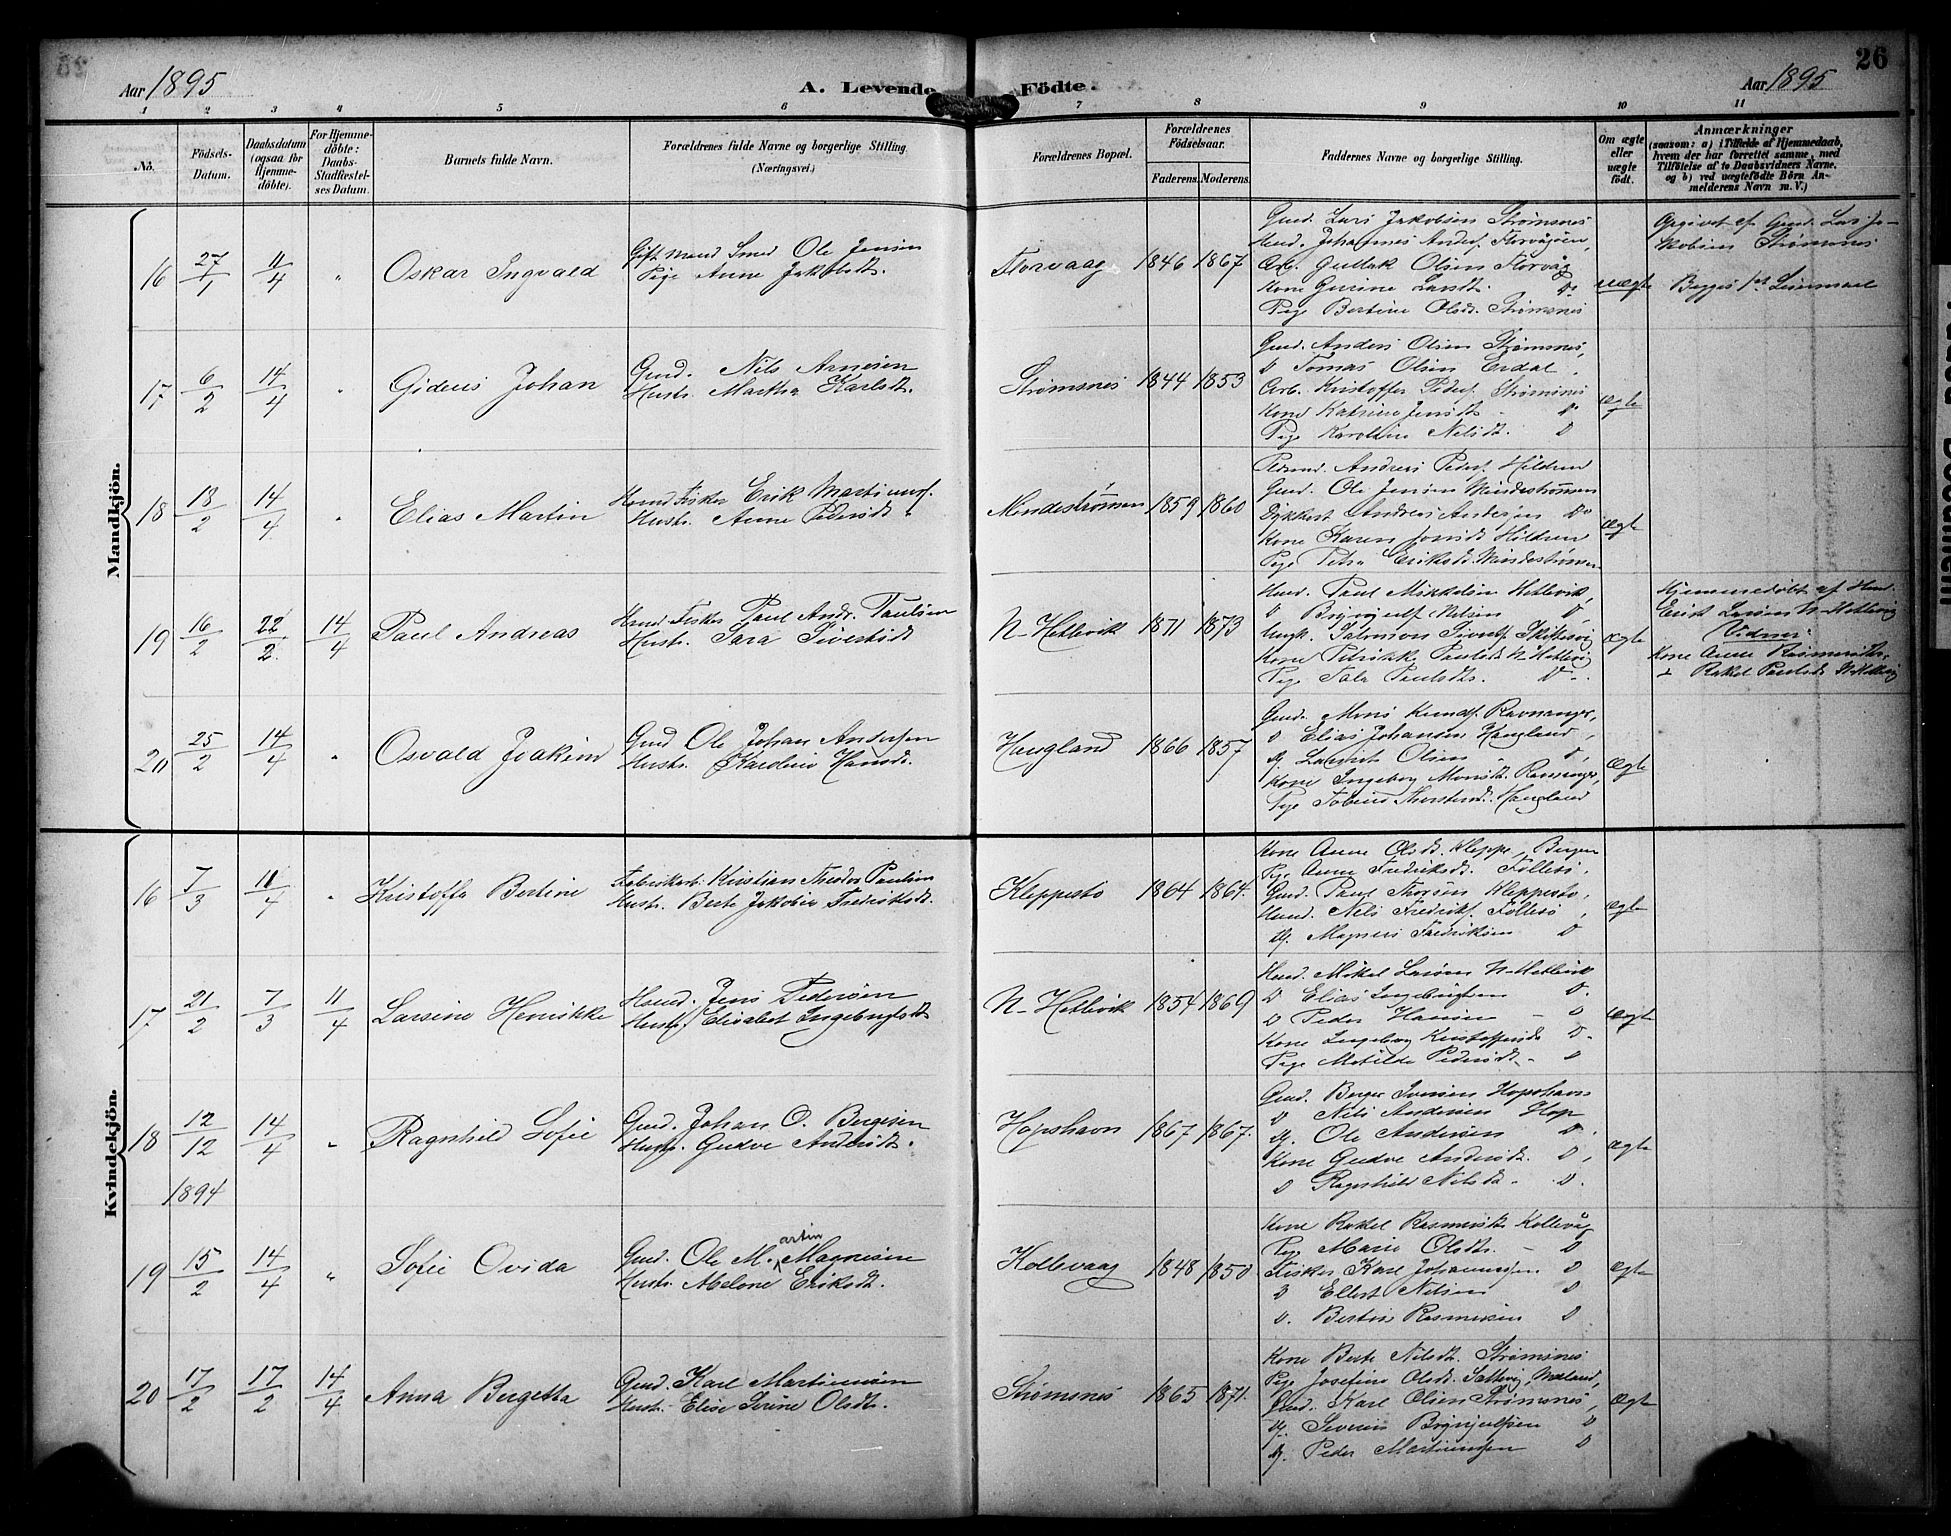 26
Aar 1895
A. Levende Födte.
Aar 1895
1 2 3 4 5 6 7 8 9 10 11
No. Födsels-Datum. Daabsdatum (ogsaa for Hjemme-döbte). For Hjemme-döbte: Daabs-Stadfestel-ses Datum. Barnets fulde Navn. Forældrenes fulde Navne og borgerlige Stilling. (Næringsvei.) Forældrenes Bopæl. Forældrenes Födselsaar. Faderens. Moderens. Faddernes Navne og borgerlige Stilling. Om ægte eller uægte födt. Anmærkninger (saasom: a) i Tilfælde af Hjemmedaab, hvem der har forrettet samme, med Tilföielse af to Daabsvidners Navne, og b) ved uægtefödte Börn An-melderens Navn m. V.)
Mandkjön.
16 27/1 11/4 " Oskar Ingvald
Gift Mand Smed Ole Jensen
Pige Anne Jakobsdt.
Florvaag 1846 1867
Gmd. Lars Jakobsen Strømsnes
Hmd. Johannes Anders. Florvågøen,
Arb. Gullak Olsen Florvåg
Kone Gurine Larsdt. Do
Pige Bertine Olsd. Strømsnes
uægte
Opgivet af Gmd. Lars Ja-
kobsen Strømsnes
Begges 1st Leiermaal
17 6/2 14/4 " Gideus Johan
Gmd. Nils Arnesen
Hustr. Martha Karlsdt.
Strømsnes 1844 1853
Gmd. Anders Olsen Strømsnes,
D Tomas Olsen Erdal,
Arb. Kristoffer Peders. Strømsnes
Kone Katrine Jensdt. Do
Pige Karoline Nilsdt. D
ægte
18 13/2 14/4 " Elias Martin
Hmd Fisker Erik Martinus.
Hustr. Anne Pedersdt.
Mindestrømmen 1859 1860
Andreas Peders. Hildren
Gmd. Ole Jensen Mindestrømmen
Andreas Andersen Do
Kone Karen Jonsd. Hildren
Pige Petra Eriksd. Mindestrømmen
ægte
19 16/2 22/2 14/4 Paul Andreas
Hmd Fisker Paul Andr. Paulsen
Hustr. Sara Sivertsdt
N-Hetlevik 1871 1873
Hmd. Paul Mikkelsen Hetlevik,
D Brynjulf Nilsen D,
Ungk. Salomon Siverts.
Kone Petrikke Paulsd. N-Hetlevig
Pige Paulsdt. D
ægte
Hjemmedøbt af Hmd.
Erik Larsen N-Hetlevig
Vidner:
Kone Anne Rasmusdtr.
& Rakel Paulsd. N-Hetlevig
20 25/2 14/4 " Osvald Joakim
Gmd Ole Johan Andersen
Hustr. Karoline Hansd.
Haugland 1866 1857
Gmd. Mons Knuds. Ravnanger,
D Elias Johansen Haugland,
Ug. Laurits Olsen D,
Kone Ingeborg Monsdt. Ravnanger,
Pige Tobine Thorstensd. Haugland
ægte
Kvindekjön.
16 7/3 11/4 " Kristoffa Bertine
Fabrikarb. Kristian Theodor Paulsen
Hustr. Berte Jakobine Fredriksdt.
Kleppestø 1864 1864.
Kone Anne Olsd. Kleppe, Bergen
Pige Anne Fredriksd. Follesø,
Gmd. Paul Thorsen Kleppestø,
Hmd. Nils Fredriks. Follesø,
Ug. Magnus Fredriksen D
ægte
17 21/2 7/3 11/4 Larsine Henrikke
Hmd. Jens Pedersen
Hustr. Elisabet Ingebrigtsdt
N-Hetlevik 1854 1869
Hmd. Mikal Larsen N-Hetlevik
D Elias Ingebrigtsen D.
D Peder Hansen - D
Kone Ingeborg Kristoffersd. D.
Pige Matilde Pedersdt. - D
ægte
18 12/12 14/4 " Ragnhild Sofie
1894
Gmd. Johan O. Bergesen
Hustr. Gudve Andersdt.
Hopshavn 1867 1867.
Gmd. Berge Iversen Hopshavn
D Nils Andersen Hop
Ug. Ole Andersen D.
Kone Gudve Andersdt. D,
D Ragnhild Nilsdt. D.
ægte
19 15/2 14/4 " Sofie Ovida
Gmd. Ole Martin Magnesen
Hustr. Malene Eriksdt.
Kollevaag 1848 1850
Kone Rakel Rasmusdt. Kollevåg
Pige Marie Olsdt. - D
Fisker Karl Johannessen D
D Ellert Nilsen D
D. Bertin Rasmussen D
ægte
20 17/2 17/2 14/4 Anna Bergetta
Gmd. Karl Martinusen
Hustr. Elise Serine Olsdt.
Strømsnes 1865 1871.
Kone Berte Nilsdt. Strømsnes
Pige Josefine Olsd.
Gmd. Karl Olsen Strømsnes,
Ug. Severin Brynjulfsen D
Ug. Peder Martinussen D
ægte